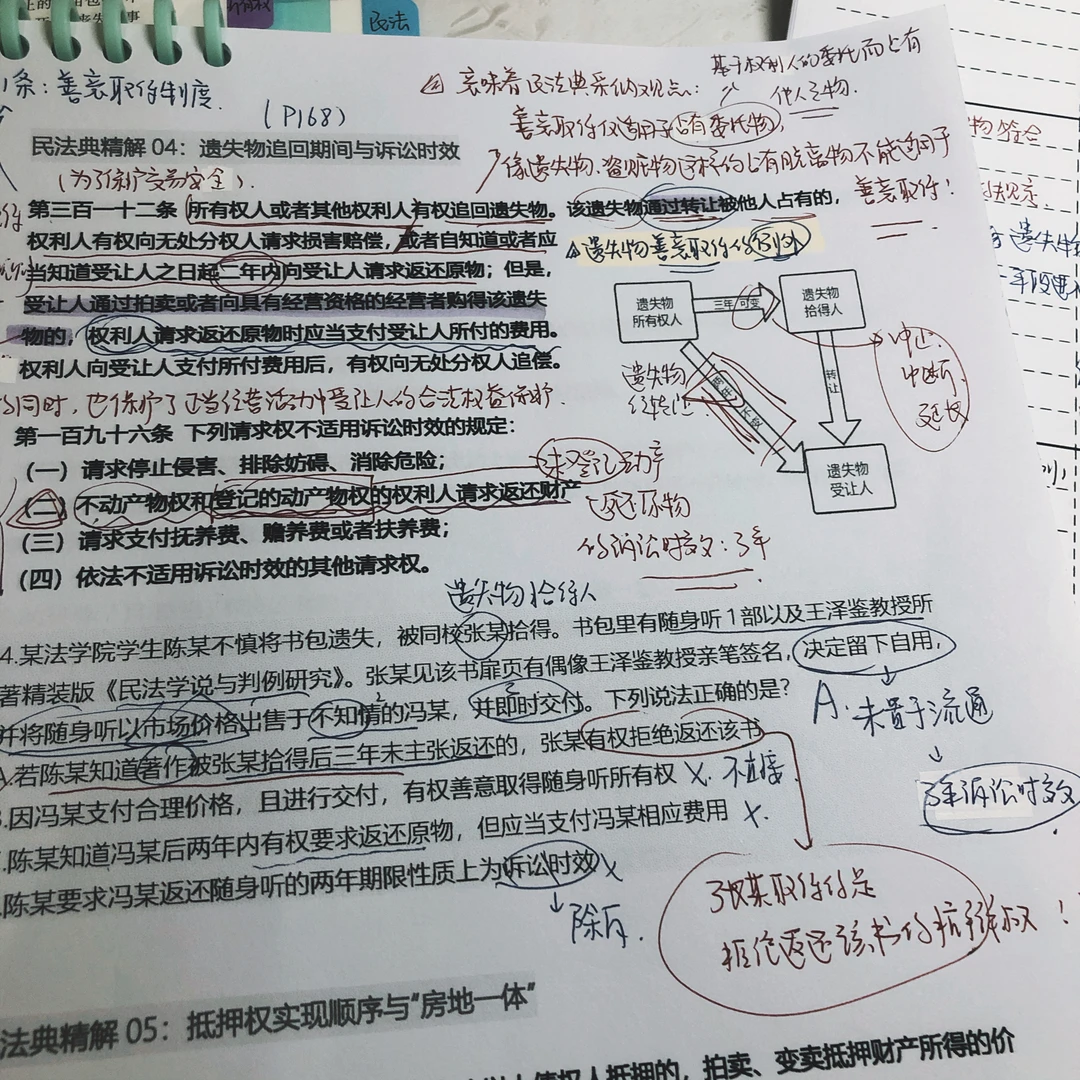 民法
条：善意取得制度.
（P168）
意味着民法典采纳观点：
基于权利人的委托而占有
他人之物.
善意取得仅适用于占有委托物，
像遗失物、盗赃物这样的占有脱离物不能适用于
善意取得！
民法典精解 04：遗失物追回期间与诉讼时效
（为了保护交易安全）.
第三百一十二条 所有权人或者其他权利人有权追回遗失物。该遗失物通过转让被他人占有的，
权利人有权向无处分权人请求损害赔偿，或者自知道或者应
遗失物善意取得的例外
当知道受让人之日起二年内向受让人请求返还原物；但是，
受让人通过拍卖或者向具有经营资格的经营者购得该遗失
物的，权利人请求返还原物时应当支付受让人所付的费用。
权利人向受让人支付所付费用后，有权向无处分权人追偿。
同时，也保护了正当经营活动中受让人的合法权益保护.
遗失物
所有权人
三年 可变
遗失物
拾得人
转让
遗失物
受让人
遗失物
中止.
中断.
延长
第一百九十六条 下列请求权不适用诉讼时效的规定：
（一）请求停止侵害、排除妨碍、消除危险；
（二）不动产物权和登记的动产物权的权利人请求返还财产
（三）请求支付抚养费、赡养费或者扶养费；
（四）依法不适用诉讼时效的其他请求权。
未登记动产
返还原物
的诉讼时效：3年
遗失物拾得人
4.某法学院学生陈某不慎将书包遗失，被同校张某拾得。书包里有随身听1部以及王泽鉴教授所
著精装版《民法学说与判例研究》。张某见该书扉页有偶像王泽鉴教授亲笔签名，决定留下自用，
并将随身听以市场价格出售于不知情的冯某，并即时交付。下列说法正确的是？
A.若陈某知道著作被张某拾得后三年未主张返还的，张某有权拒绝返还该书
.因冯某支付合理价格，且进行交付，有权善意取得随身听所有权 X.
.陈某知道冯某后两年内有权要求返还原物，但应当支付冯某相应费用 X.
.陈某要求冯某返还随身听的两年期限性质上为诉讼时效 X
除斥.
A. 未置于流通
3年诉讼时效
张某取得的是
拒绝返还该书的抗辩权！
法典精解 05：抵押权实现顺序与“房地一体”
债权人抵押的，拍卖、变卖抵押财产所得的价